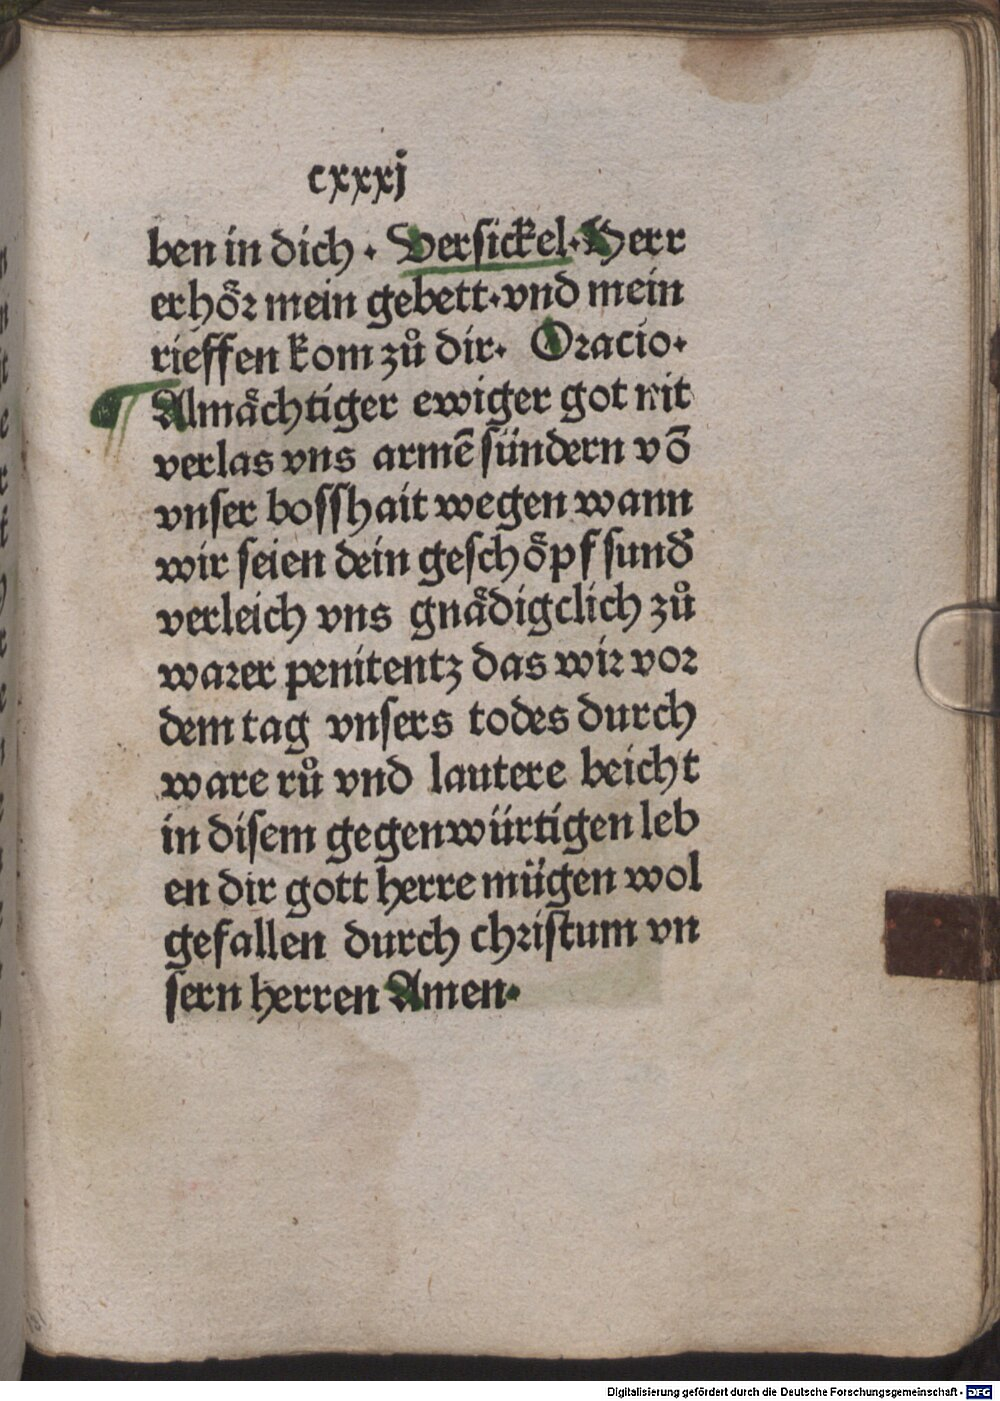 cxxxj
ben in dich · Versickel · Herr
erhoͤꝛ mein gebett · vnd mein
rieffen kom zů dir · Oꝛacio ·
Almaͤchtiger ewiger got nit
verlas vns armē sündern vō
vnser bosshait wegen wann
wir seien dein geschoͤpf sund̄
verleich vns gnaͤdigclich zů
waꝛer penitentz das wiꝛ voꝛ
dem tag vnsers todes durch
ware rů vnd lautere beicht
in disem gegenwürtigen leb
en dir gott herre mügen wol
gefallen durch chꝛistum vn
sern herren Amen ·
Digitalisierung gefördert durch die Deutsche Forschungsgemeinschaft - DFG